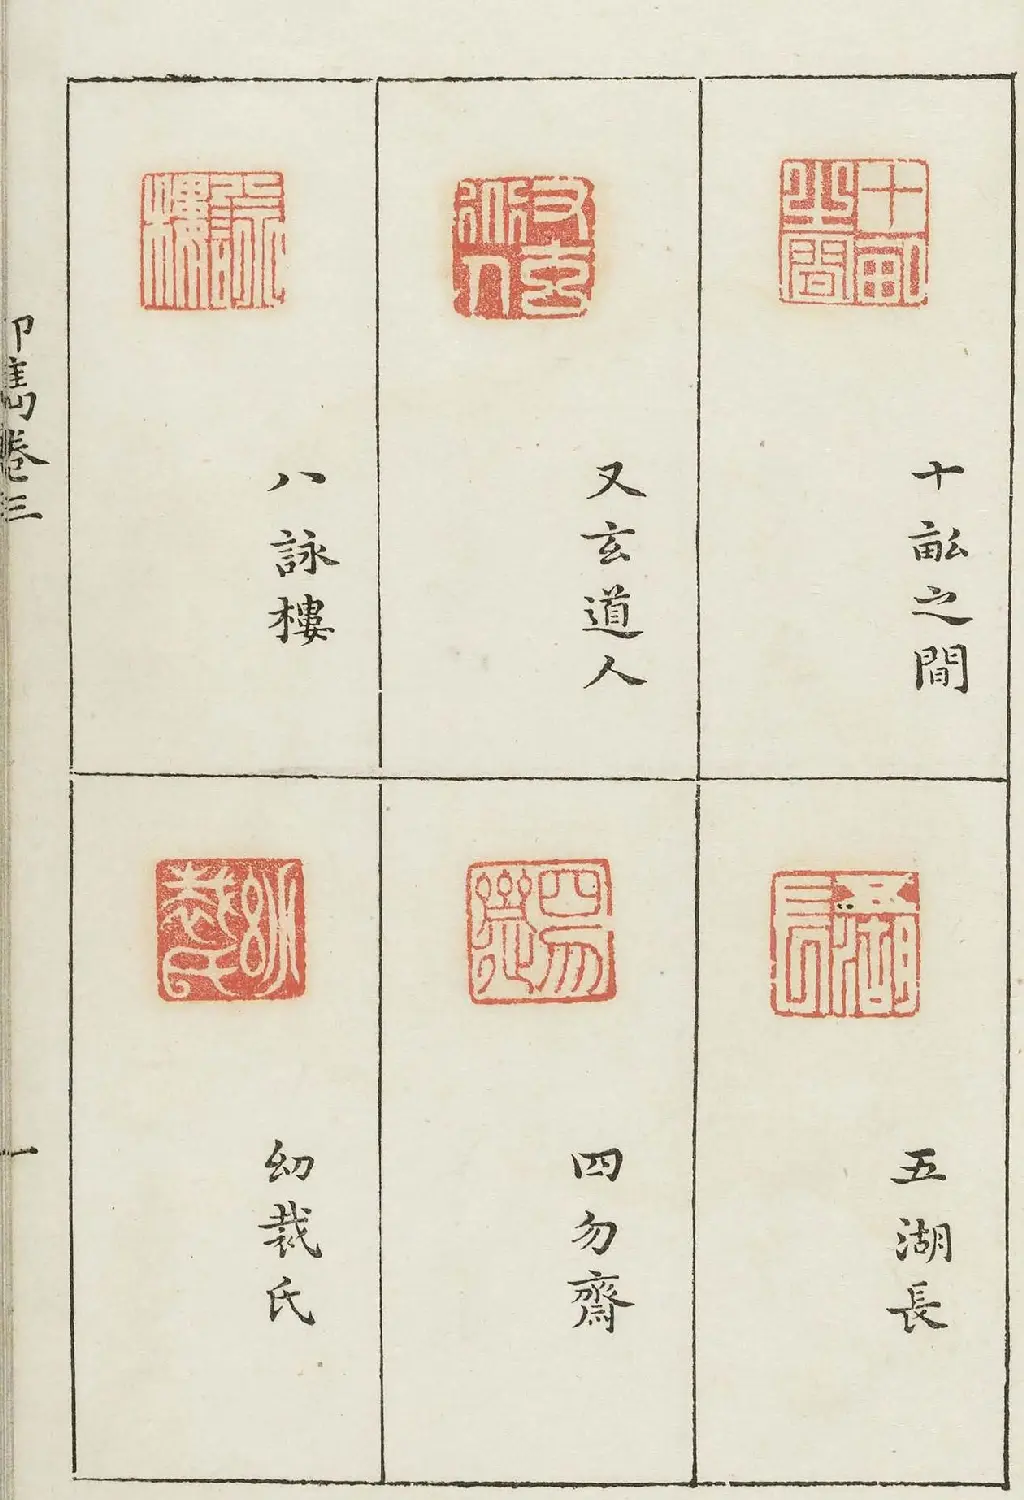 十畝之間
又玄道人
八詠樓
五湖長
四勿齋
幼裁氏
印雋卷三
一